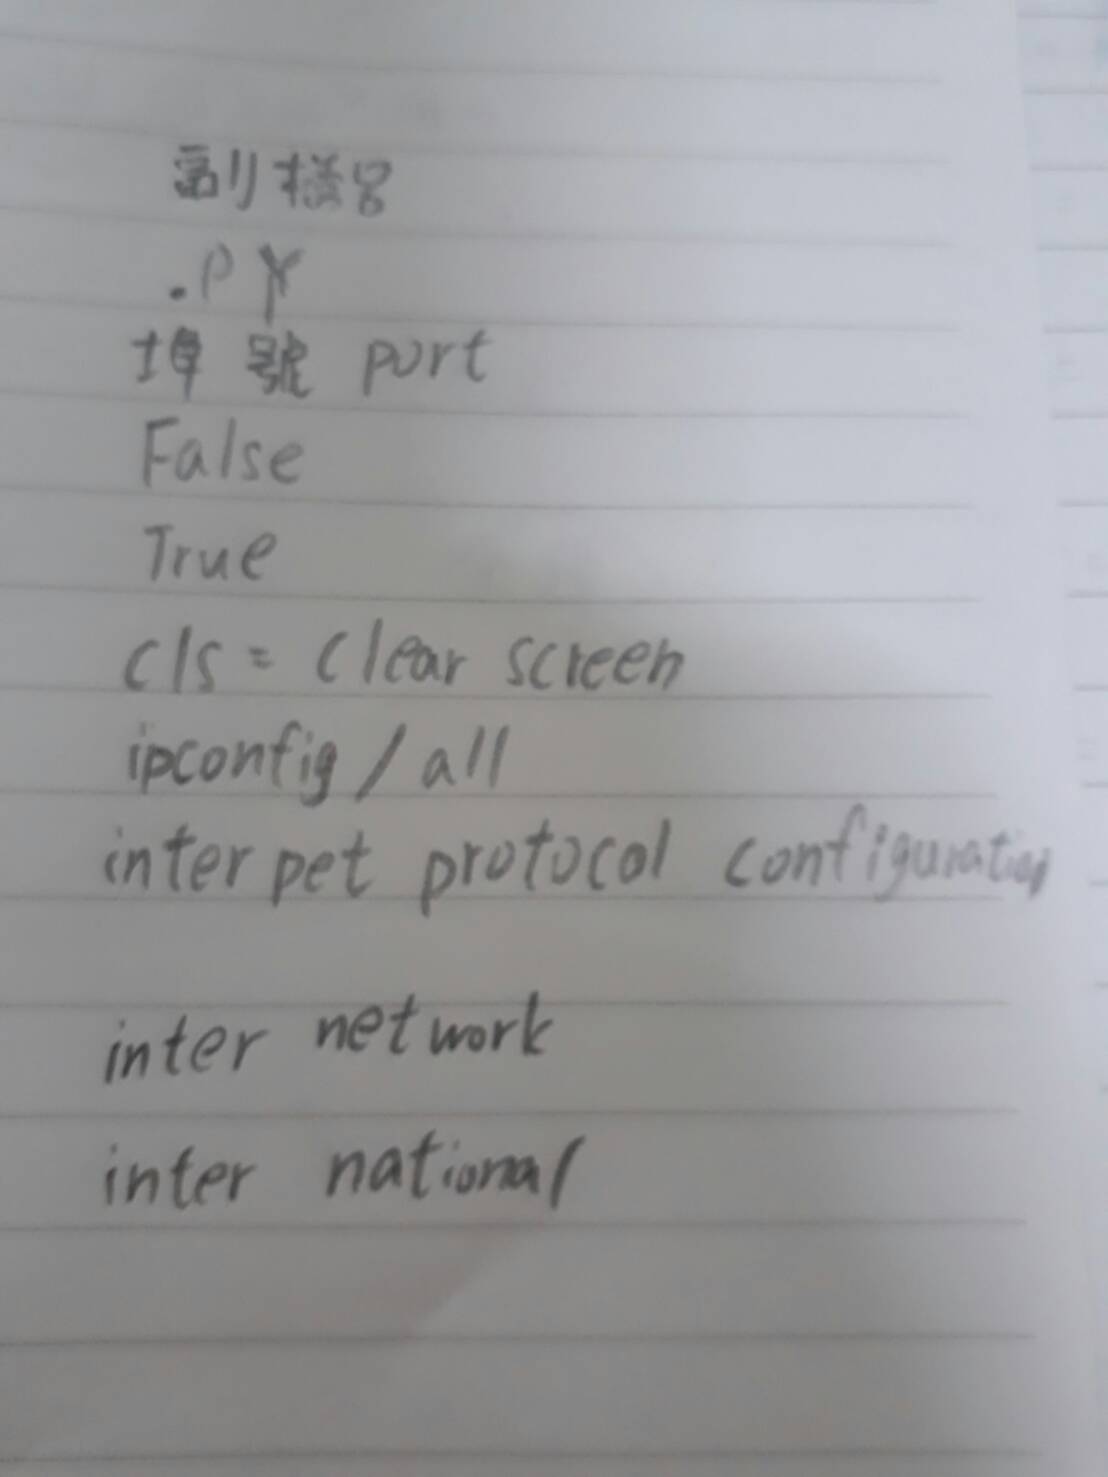 副檔名
.PY
埠號 port
False
True
cls = clear screen
ipconfig / all
inter pet protocol configuration
inter network
inter national